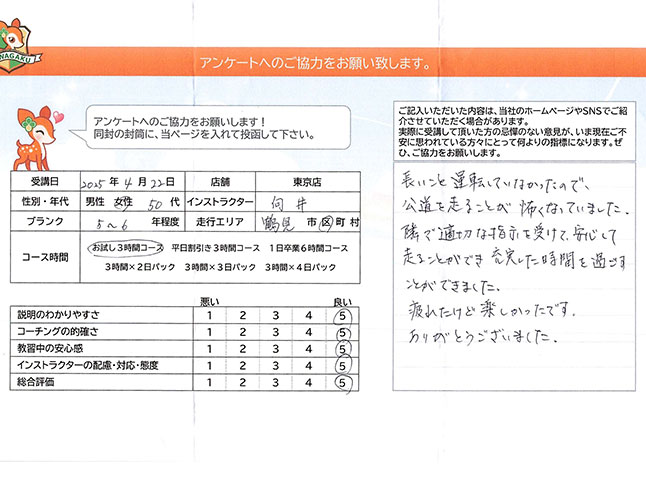 WAGAKU
アンケートへのご協力をお願い致します。
アンケートへのご協力をお願いします！
同封の封筒に、当ページを入れて投函して下さい。
ご記入いただいた内容は、当社のホームページやSNSでご紹
介させていただく場合があります。
実際に受講して頂いた方の忌憚のない意見が、いま現在ご不
安に思われている方々にとって何よりの指標になります。ぜ
ひ、ご協力をお願いします。
受講日 2025年 4月 22日 店舗 東京店
性別・年代 男性 女性 50代 インストラクター 向井
ブランク 5〜6 年程度 走行エリア 鶴見 市区町村
コース時間 お試し3時間コース 平日割引き3時間コース 1日卒業6時間コース
3時間×2日パック 3時間×3日パック 3時間×4日パック
悪い 良い
説明のわかりやすさ 1 2 3 4 5
コーチングの的確さ 1 2 3 4 5
教習中の安心感 1 2 3 4 5
インストラクターの配慮・対応・態度 1 2 3 4 5
総合評価 1 2 3 4 5
長いこと運転していなかったので、
公道を走ることが怖くなっていました。
隣で適切な指示を受けて、安心して
走ることができ充実した時間を過ごす
ことができました。
疲れたけど楽しかったです。
ありがとうございました。